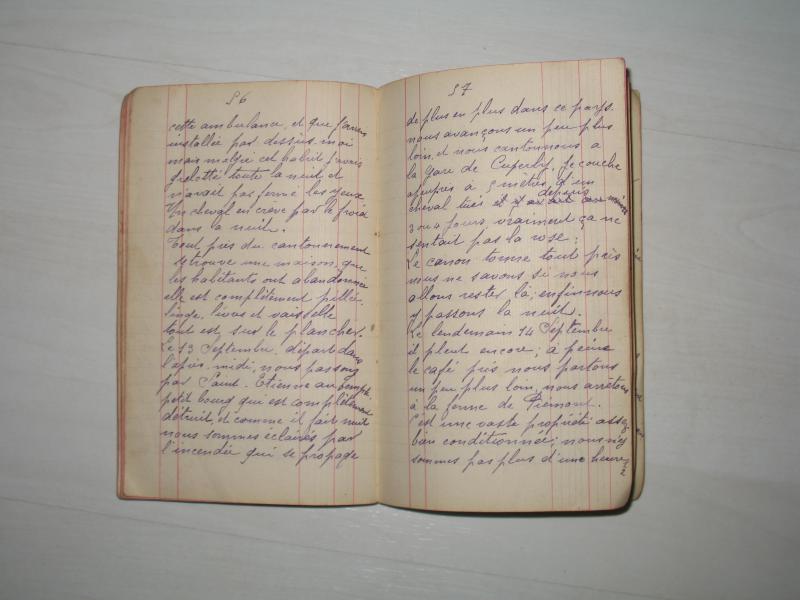 56
cette ambulance, et que j'avais
installée par dessus moi
mais malgré cet habit j'avais
grelotté toute la nuit et
n'avait pas fermé les yeux
Un cheval en crève par le froid
dans la nuit.
Tout près du cantonnement
se trouve une maison que
les habitants ont abandonnée
elle est complètement pillée
linge, livres et vaisselle
tout est sur le plancher.
Le 13 Septembre, départ dans
l'après midi, nous passons
par Saint-Etienne au temple
petit bourg qui est complètement
détruit, et comme il fait nuit
nous sommes éclairés par
l'incendie qui se propage
57
de plus en plus dans ce pays.
nous avançons un peu plus
loin, et nous cantonnons a
la gare de Cuperly, je couche
à peu près à 5 mètres d'un
cheval tués depuis au moins
3 ou 4 jours vraiment ça ne
sentait pas la rose;
Le canon tonne tout près
nous ne savons si nous
allons rester là; enfin nous
y passons la nuit.
Le lendemain 14 Septembre
il pleut encore; à peine
le café pris nous partons
un peu plus loin, nous arrêtons
à la ferme de Piémont.
C'est une vaste propriété assez
bien conditionnée; nous n'y
sommes pas plus d'une heure